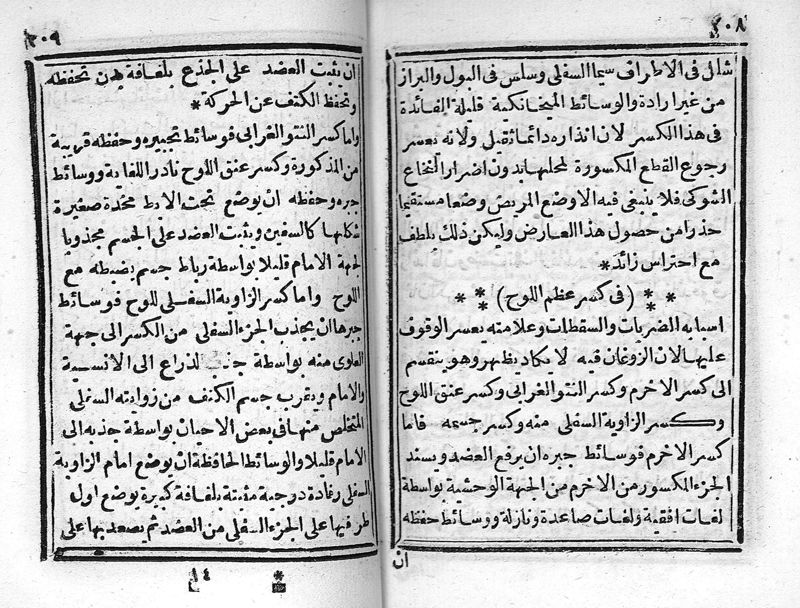 ٢٠٨
شلل فى الاطراف سيما السفلى وسلس فى البول والبراز
من غير ارادة والوسائط الميخانيكية قليلة الفائدة
فى هذا الكسر لان انذاره دائما ثقيل ولانه يعسر
رجوع القطع المكسورة لمحلها بدون اضرار النخاع
الشوكى فلا ينبغى فيه الا وضع المريض وضعا مستقيما
حذرا من حصول هذا العارض وليكن ذلك بلطف
مع احتراس زائد *
* * * (فى كسر عظم اللوح) * * *
اسبابه الضربات والسقطات وعلامته يعسر الوقوف
عليها لان الزوغان فيه لا يكاد يظهر وهو ينقسم
الى كسر الاخرم وكسر النتو الغرابى وكسر عنق اللوح
وكسر الزاوية السفلى منه وكسر جسمه فاما
كسر الاخرم فوسائط جبره ان يرفع العضد ويسند
الجزء المكسور من الاخرم من الجهة الوحشية بواسطة
لفات افقية ولفات صاعدة ونازلة ووسائط حفظه
ان
٢٠٩
ان يثبت العضد على الجذع بلفافة بدن تحفظه
وتحفظ الكتف عن الحركة *
واما كسر النتو الغرابى فوسائط تجبيره وحفظه قريبة
من المذكورة وكسر عنق اللوح نادر للغاية ووسائط
جبره وحفظه ان يوضع تحت الابط مخدة صغيرة
شكلها كالسفين ويثبت العضد على الجسم مجذوبا
لجهة الامام قليلا بواسطة رباط جسم يضبطه مع
اللوح واما كسر الزاوية السفلى للوح فوسائط
جبرها ان يجذب الجزء السفلى من الكسر الى جهة
العلوى منه بواسطة جذب الذراع الى الانسية
والامام ويقرب جسم الكتف من زوايته السفلى
المتخلص منها فى بعض الاحيان بواسطة جذبه الى
الامام قليلا والوسائط الحافظة ان يوضع امام الزاوية
السفلى رفادة درجية مثبتة بلفافة كبيرة يوضع اول
طرفيها على الجزء السفلى من العضد ثم يصعد بها على
١٤